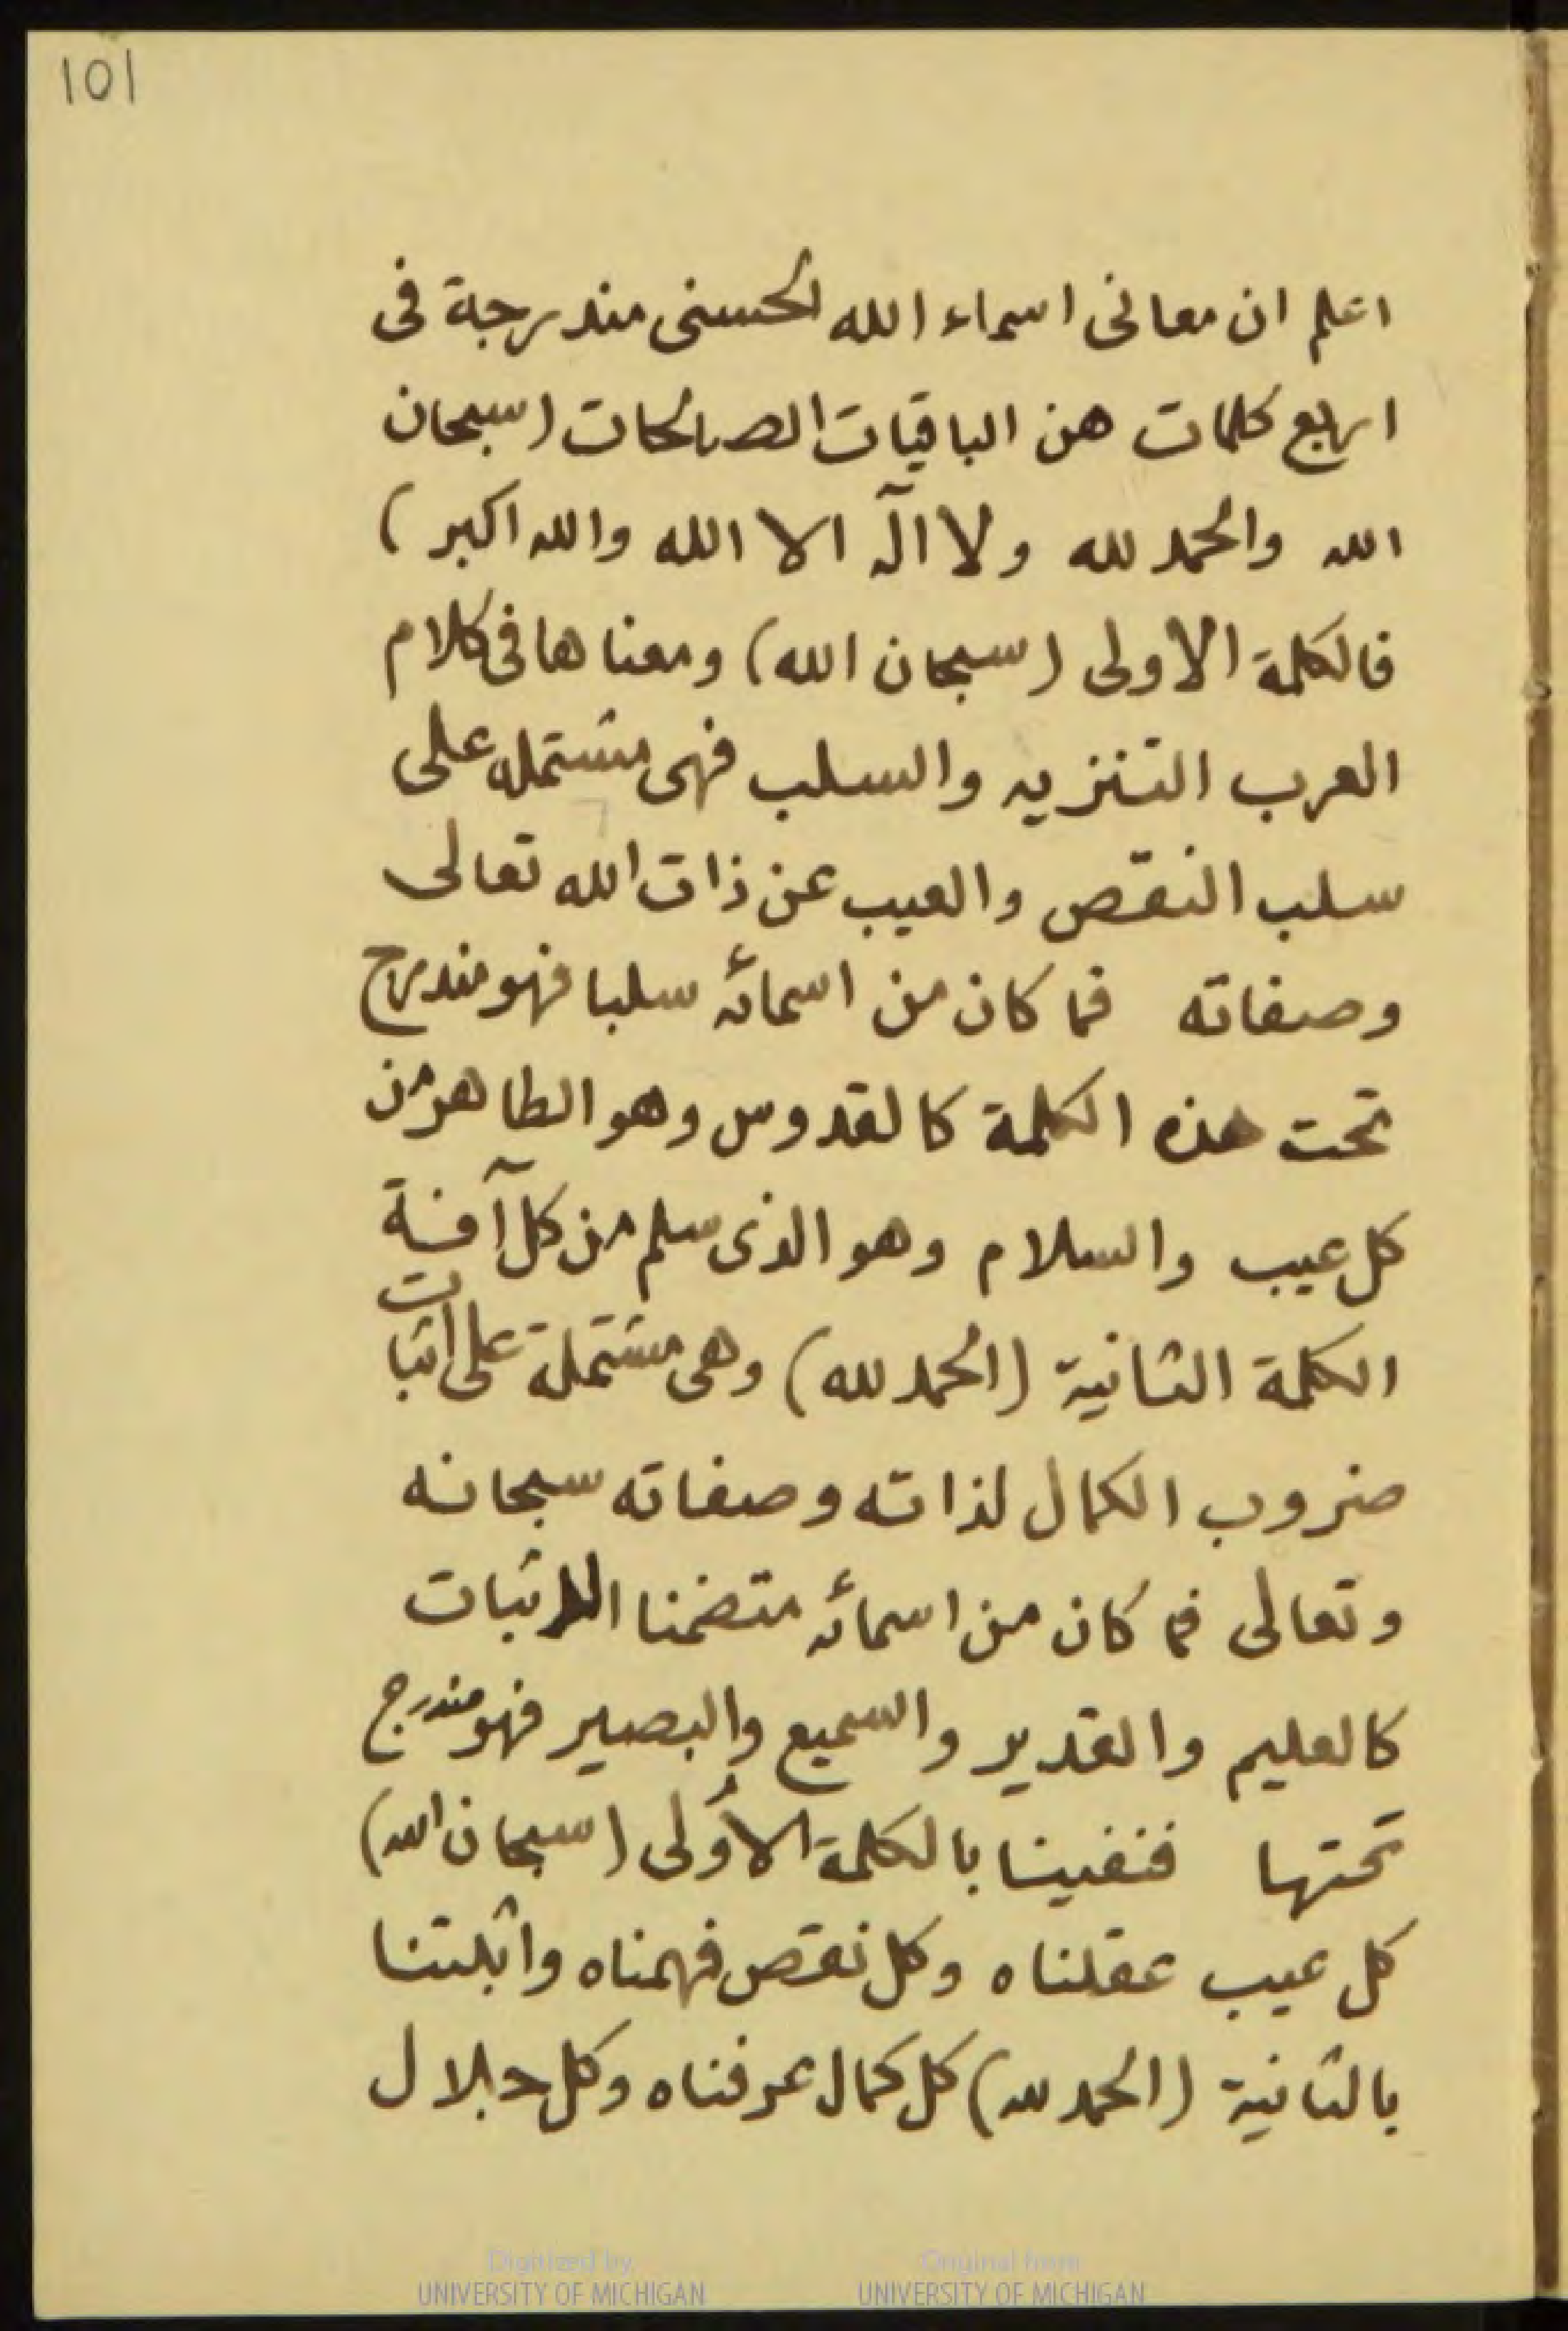 101
اعلم ان معانى اسماء الله الحسنى مندرجة فى
اربع كلمات هن الباقيات الصالحات (سبحان
الله والحمد لله ولا اله الا الله والله اكبر)
فالكلمة الاولى (سبحان الله) ومعناها فى كلام
العرب التنزيه والسلب فهى مشتمله على
سلب النقص والعيب عن ذات الله تعالى
وصفاته فما كان من اسمائه سلبا فهو مندرج
تحت هذه الكلمة كالقدوس وهو الطاهر من
كل عيب والسلام وهو الذى سلم من كل آفة
الكلمة الثانية (الحمد لله) وهى مشتملة على اثبات
ضروب الكمال لذاته وصفاته سبحانه
وتعالى فما كان من اسمائه متضمنا الاثبات
كالعليم والقدير والسميع والبصير فهو مندرج
تحتها فنفينا بالكلمة الأولى (سبحان الله)
كل عيب عقلناه وكل نقص فهمناه واثبتنا
بالثانية (الحمد لله) كل كمال عرفناه وكل جلال
Digitized by Original from
UNIVERSITY OF MICHIGAN UNIVERSITY OF MICHIGAN